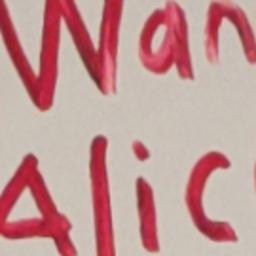 Wan
Alic